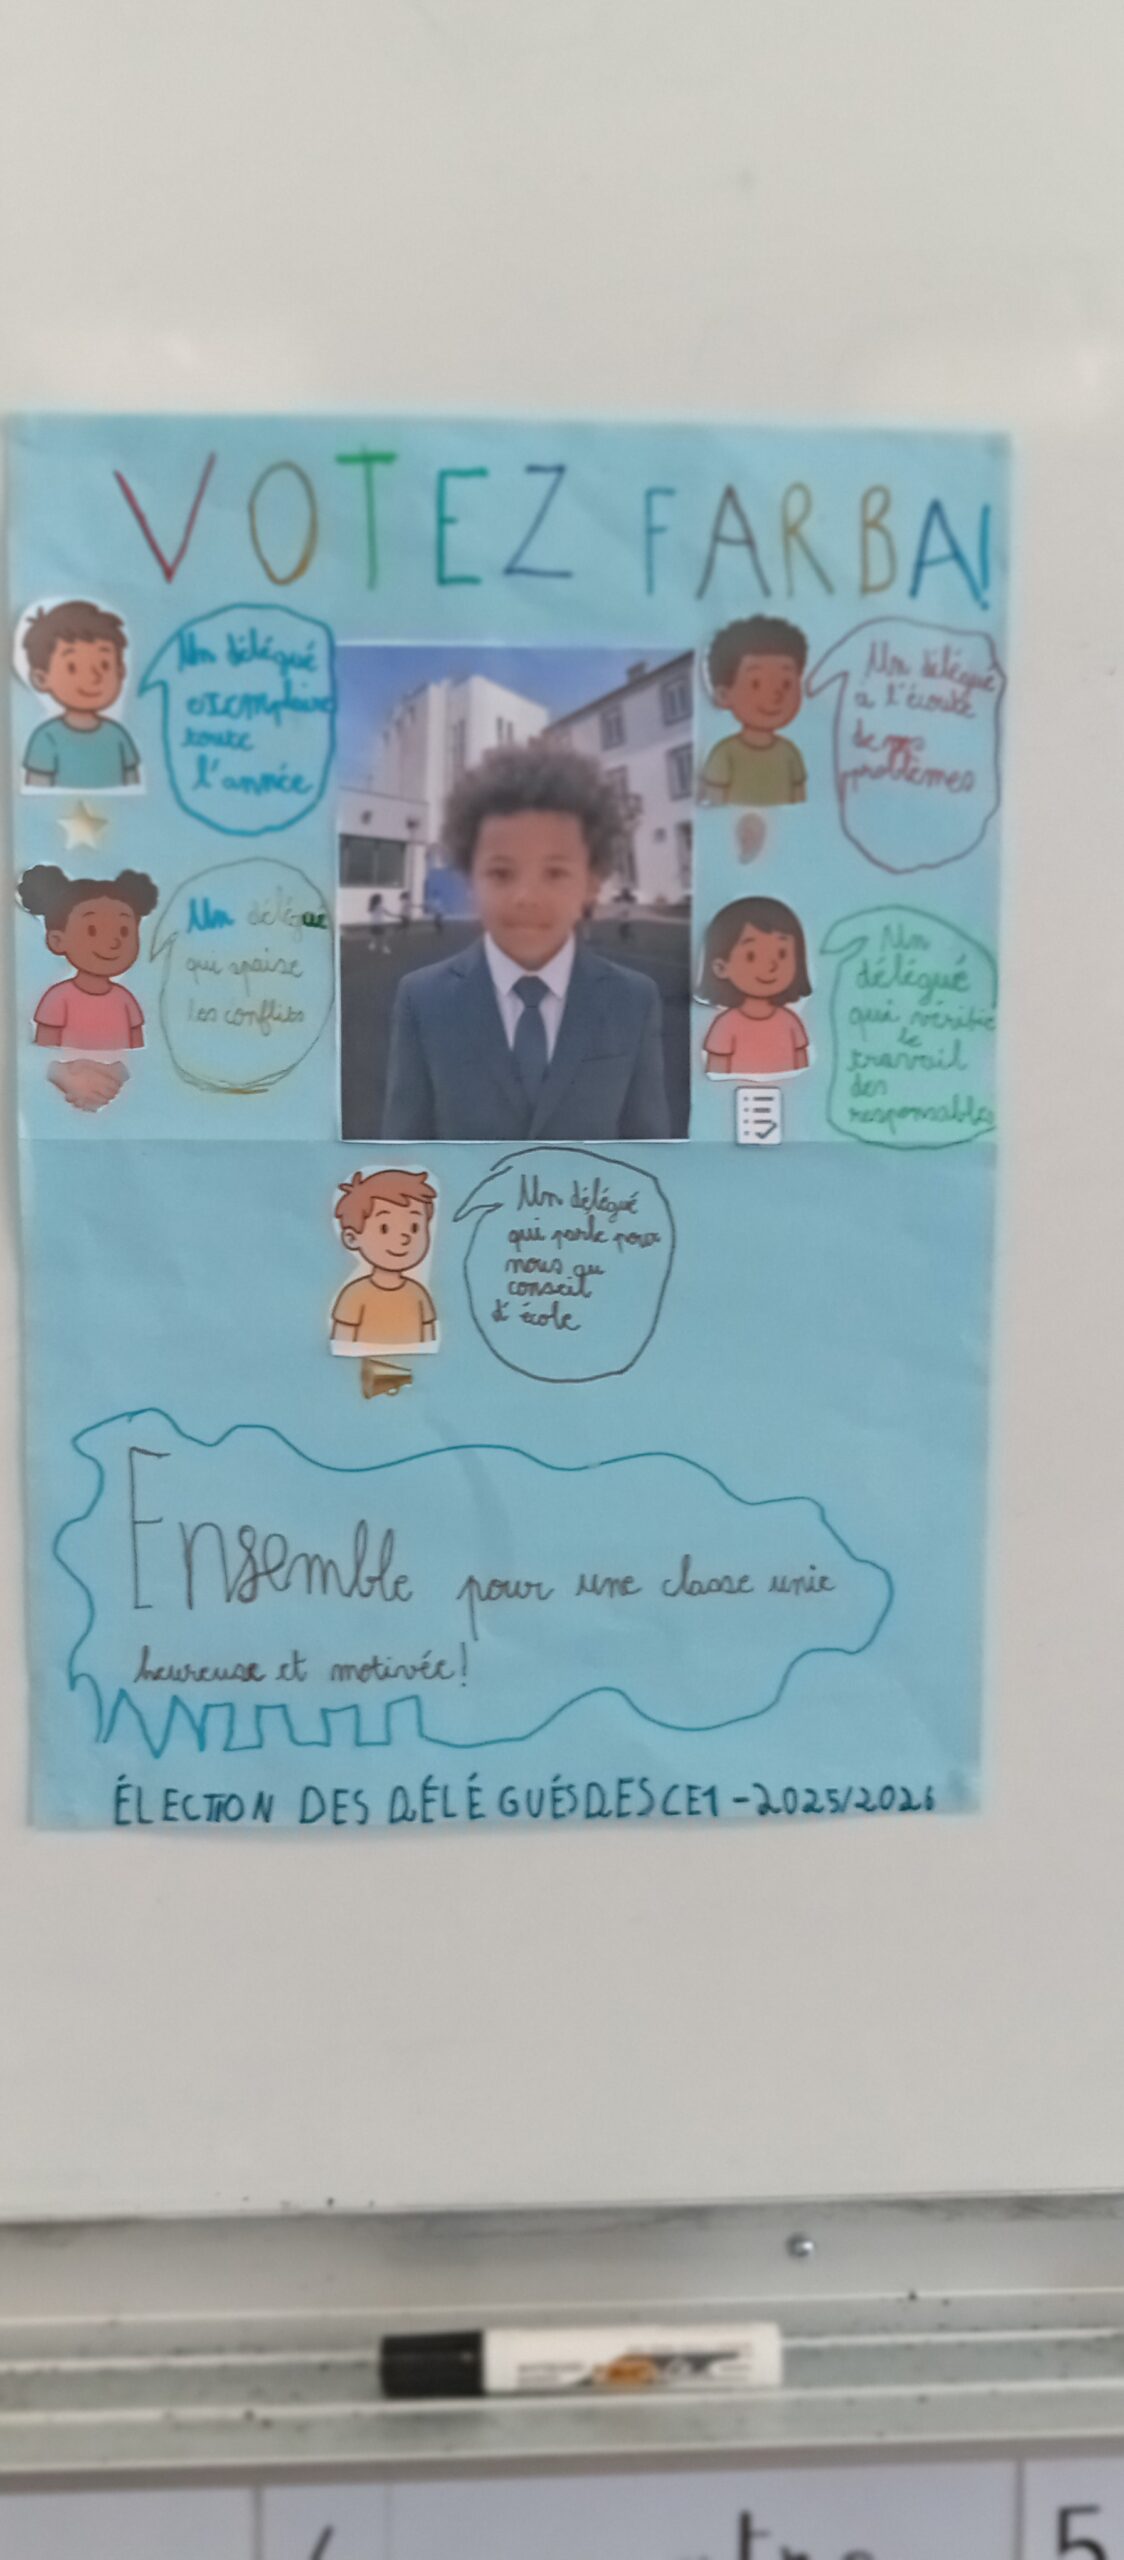 VOTEZ FARBA!
Un délégué
exemplaire
toute
l'année
Un délégué
a l'écoute
de nos
problèmes
Un délégué
qui apaise
les conflits
Un
délégué
qui vérifie
le
travail
des
responsables
Un délégué
qui parle pour
nous au
conseil
d'école
Ensemble pour une classe unie
heureuse et motivée!
ÉLECTION DES DÉLÉGUÉS DES CE1-2025/2026
5